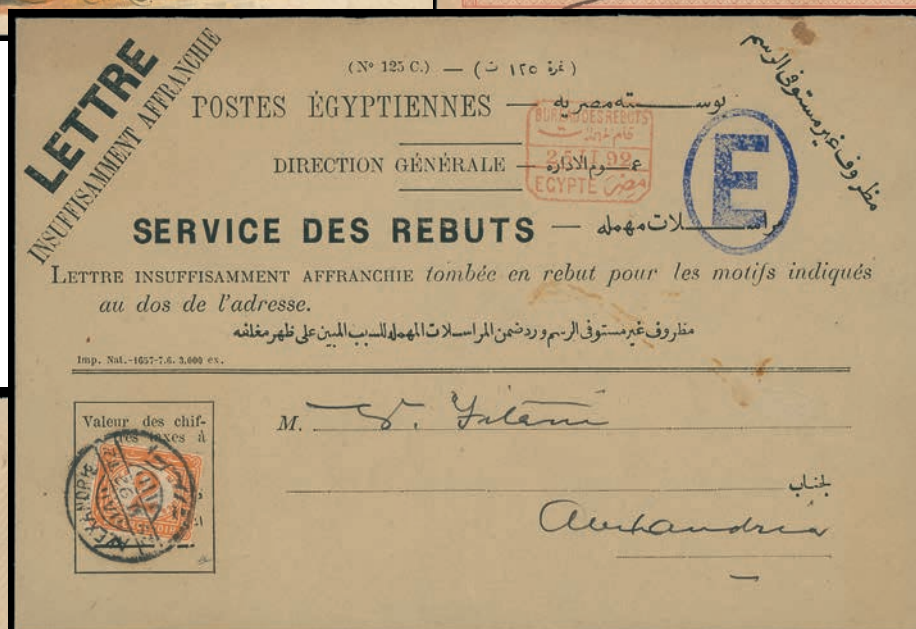 LETTRE
INSUFFISAMMENT AFFRANCHIE
مظروف غير مستوفى الرسم
(Nº 125 C.) — (نمرة ١٢٥ ت)
POSTES ÉGYPTIENNES — بوسته مصريه
BUREAU DES REBUTS
DIRECTION GÉNÉRALE — عموم الاداره
92
EGYPTE مصر
E
SERVICE DES REBUTS — مراسلات مهمله
LETTRE INSUFFISAMMENT AFFRANCHIE tombée en rebut pour les motifs indiqués
au dos de l'adresse.
مظروف غير مستوفى الرسم ورد ضمن المراسلات المهمله للسبب المبين على ظهر مغلفه
Imp. Nat.-1657-7.6. 3,000 ex.
Valeur des chif-
fres taxes à
M.
لجناب
Alexandria